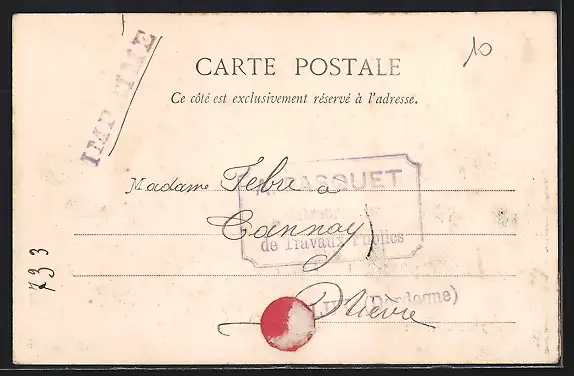 10
IMPRIMÉ
CARTE POSTALE
Ce côté est exclusivement réservé à l'adresse.
Madame Febre à
A. PASQUET
Tannay
de Travaux Publics
(Dordogne)
Nièvre
733